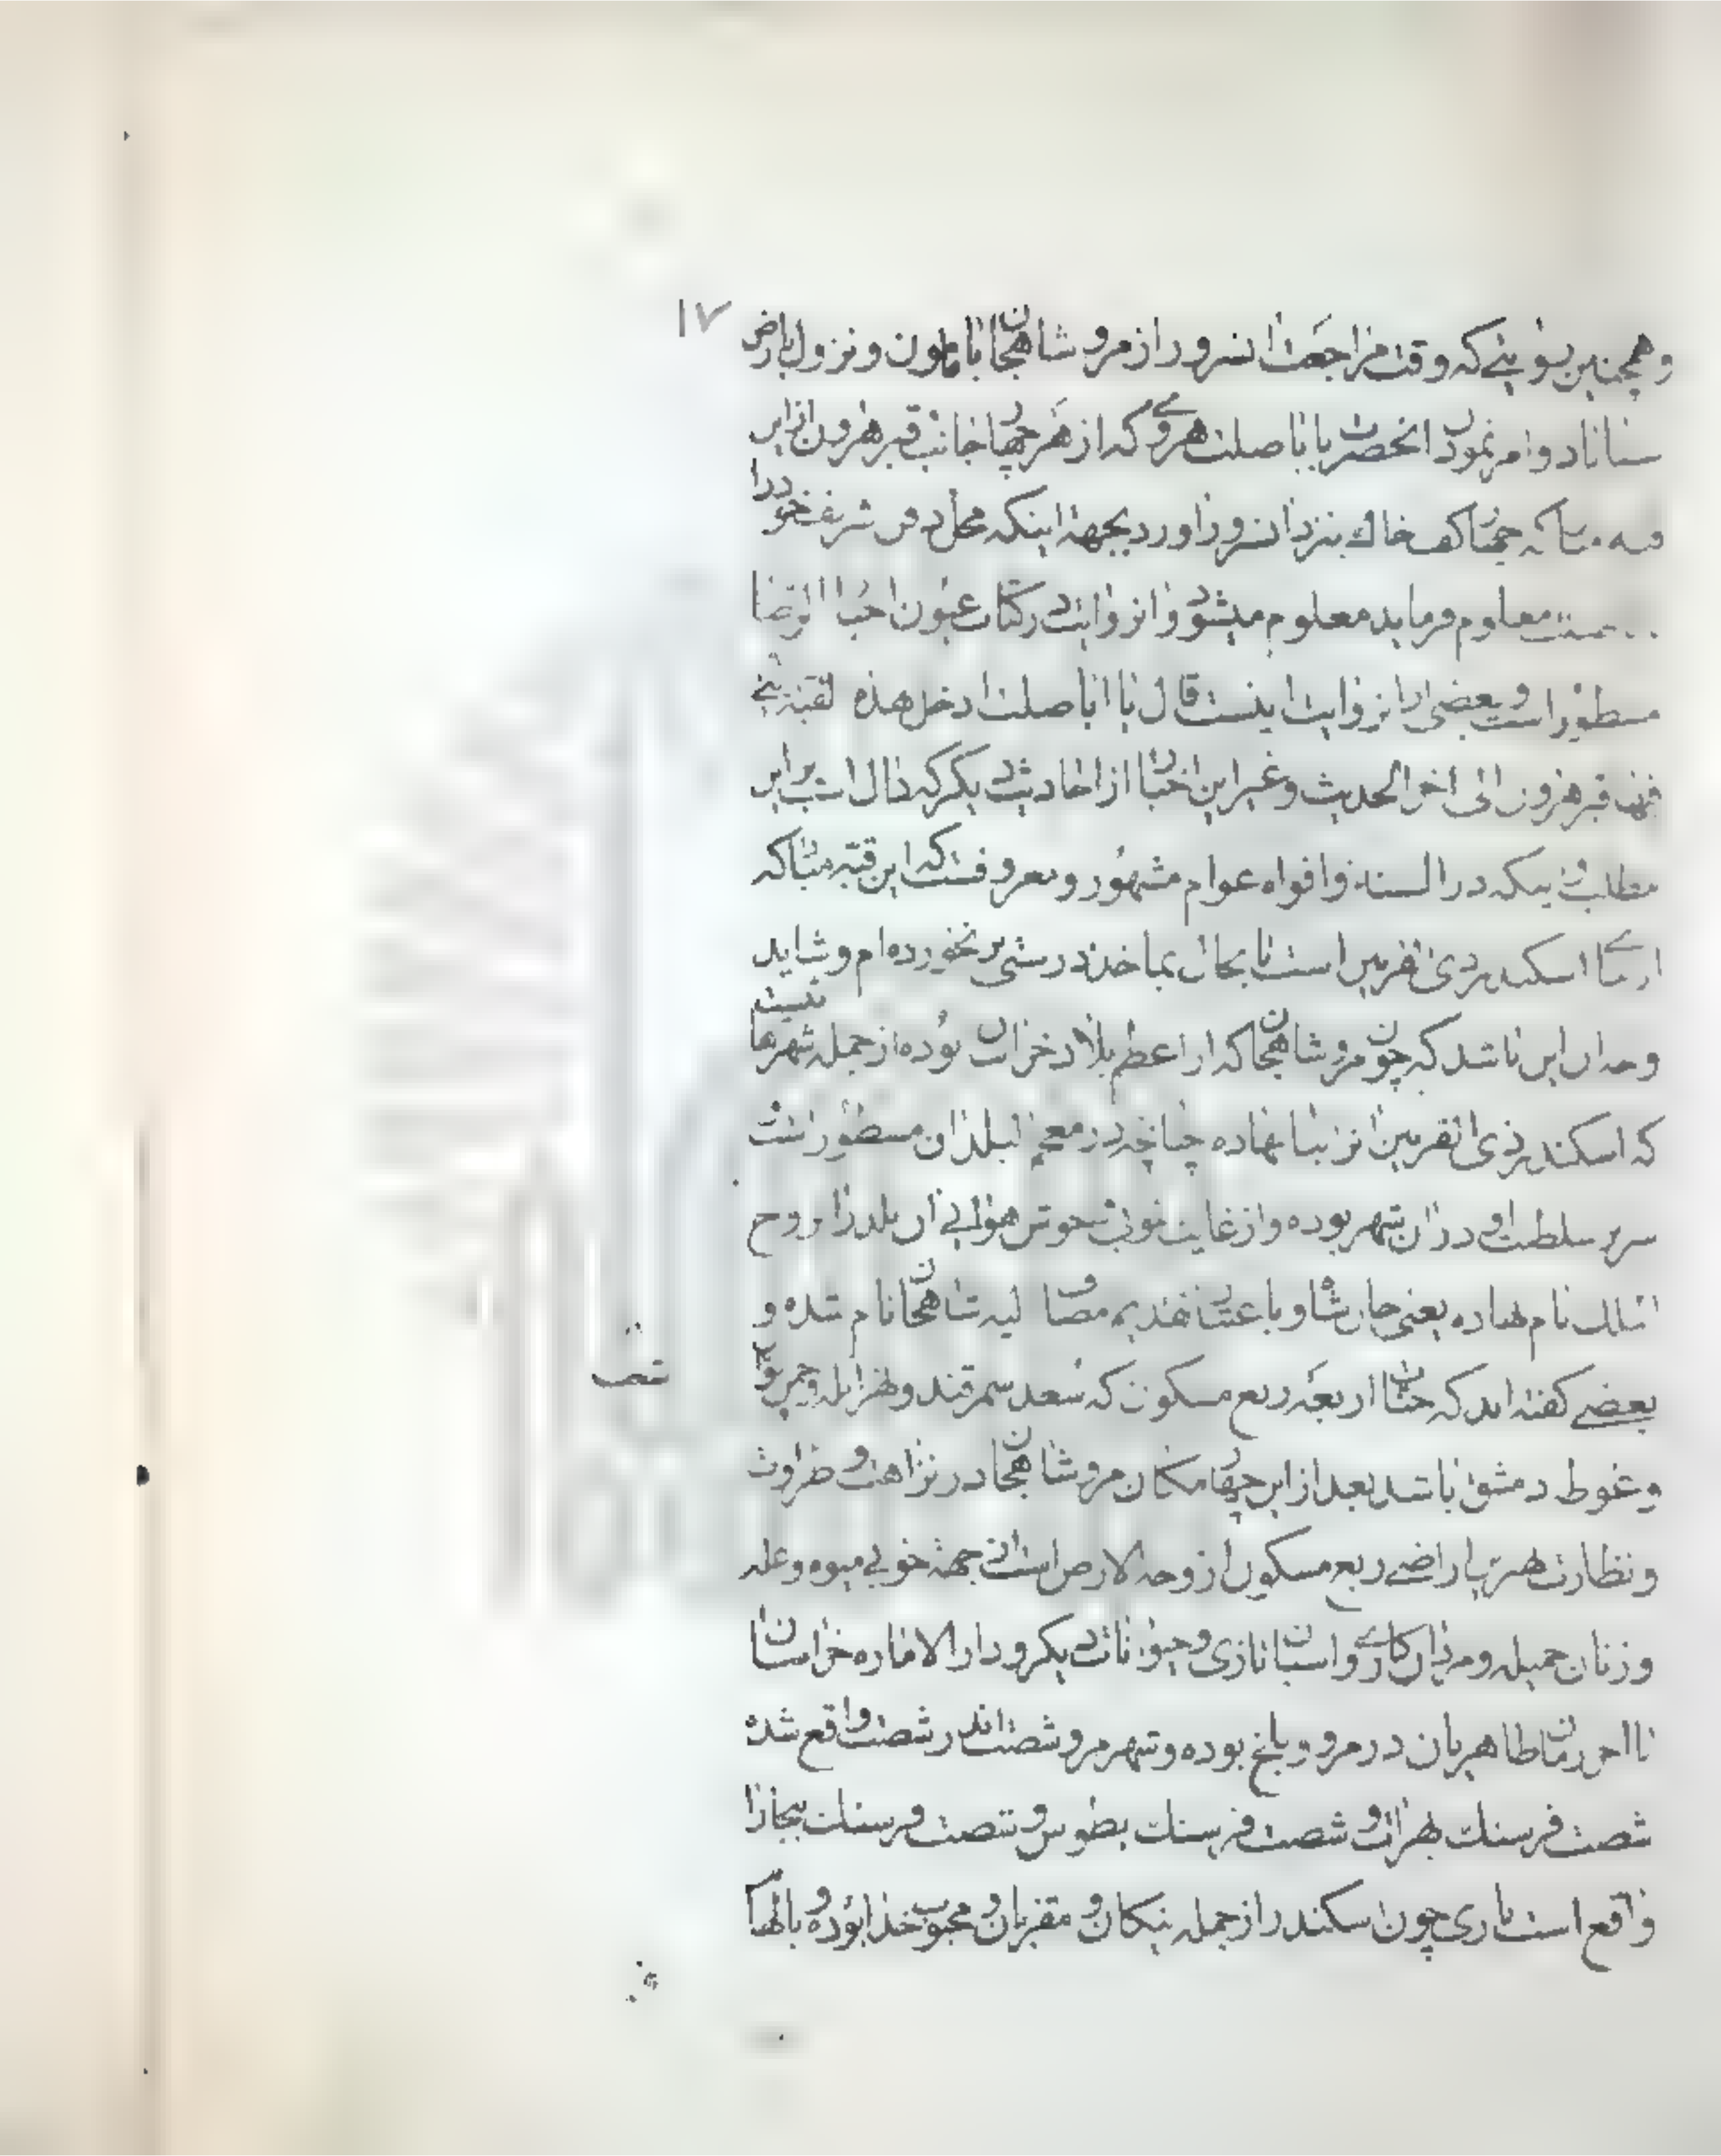 ۱۷
وهمچنین که وقت مراجعت انسرور از مرو شاهجان با مامون و نزول باراض
سناباد و امر نمودن انحضرت باباصلت هروی که از هر چهار جانب قبر هرون از این
قبه مبارکه کف خاك بنزد انسرور اورد بجهة اینکه محل دفن شریف خود را
معلوم فرماید معلوم میشود و انروایت در کتاب عیون اخبار الرضا
مسطور است و بعضی از انروایت اینست قال یا اباصلت ادخل هذه القبة التی
فیها قبر هرون الی اخر الحدیث و غیر این اخبار از احادیث دیکر که دال است بر این
مطلب و اینکه در السنه و افواه عوام مشهور و معروفست که این قبه مبارکه
از بنای اسکندر ذی القرنین است تا بحال بماخذ درستی بر نخورده ام و شاید
وجه ان این باشد که چون مرو شاهجان که از اعظم بلاد خراسان بوده از جمله شهرها ئیست
که اسکندر ذی القرنین انرا بنا نهاده چنانچه در معجم البلدان مسطور است
سریر سلطنت او در ان شهر بوده و از غایت خوبی و خوش هوایی ان بلد را روح
الملك نام نهاده یعنی جان شاه و باعتبار تقدیم مضاف الیه شاهجان نام شده و
بعضی کفته اند که جنات اربعه ربع مسکون که سغد سمرقند و نهر ابله و
و غوطه دمشق باشد بعد از این چهار مکان مرو شاهجان در نزاهت و طراوت
و نظارت بهترین اراضی ربع مسکون از وجه الارض است از جهة خوبی میوه و غله
و زنان جمیله و مردان کاری و اسبان تازی و حیوانات دیکر و دار الاماره خراسان
تا اخر زمان طاهریان در مرو و بلخ بوده و شهر مرو شصت اندر شصت واقع شده
شصت فرسنك بهرات و شصت فرسنك بطوس و شصت فرسنك ببخارا
واقع است باری چون اسکندر از جمله نیکان و مقربان و محبوب خدا بوده و